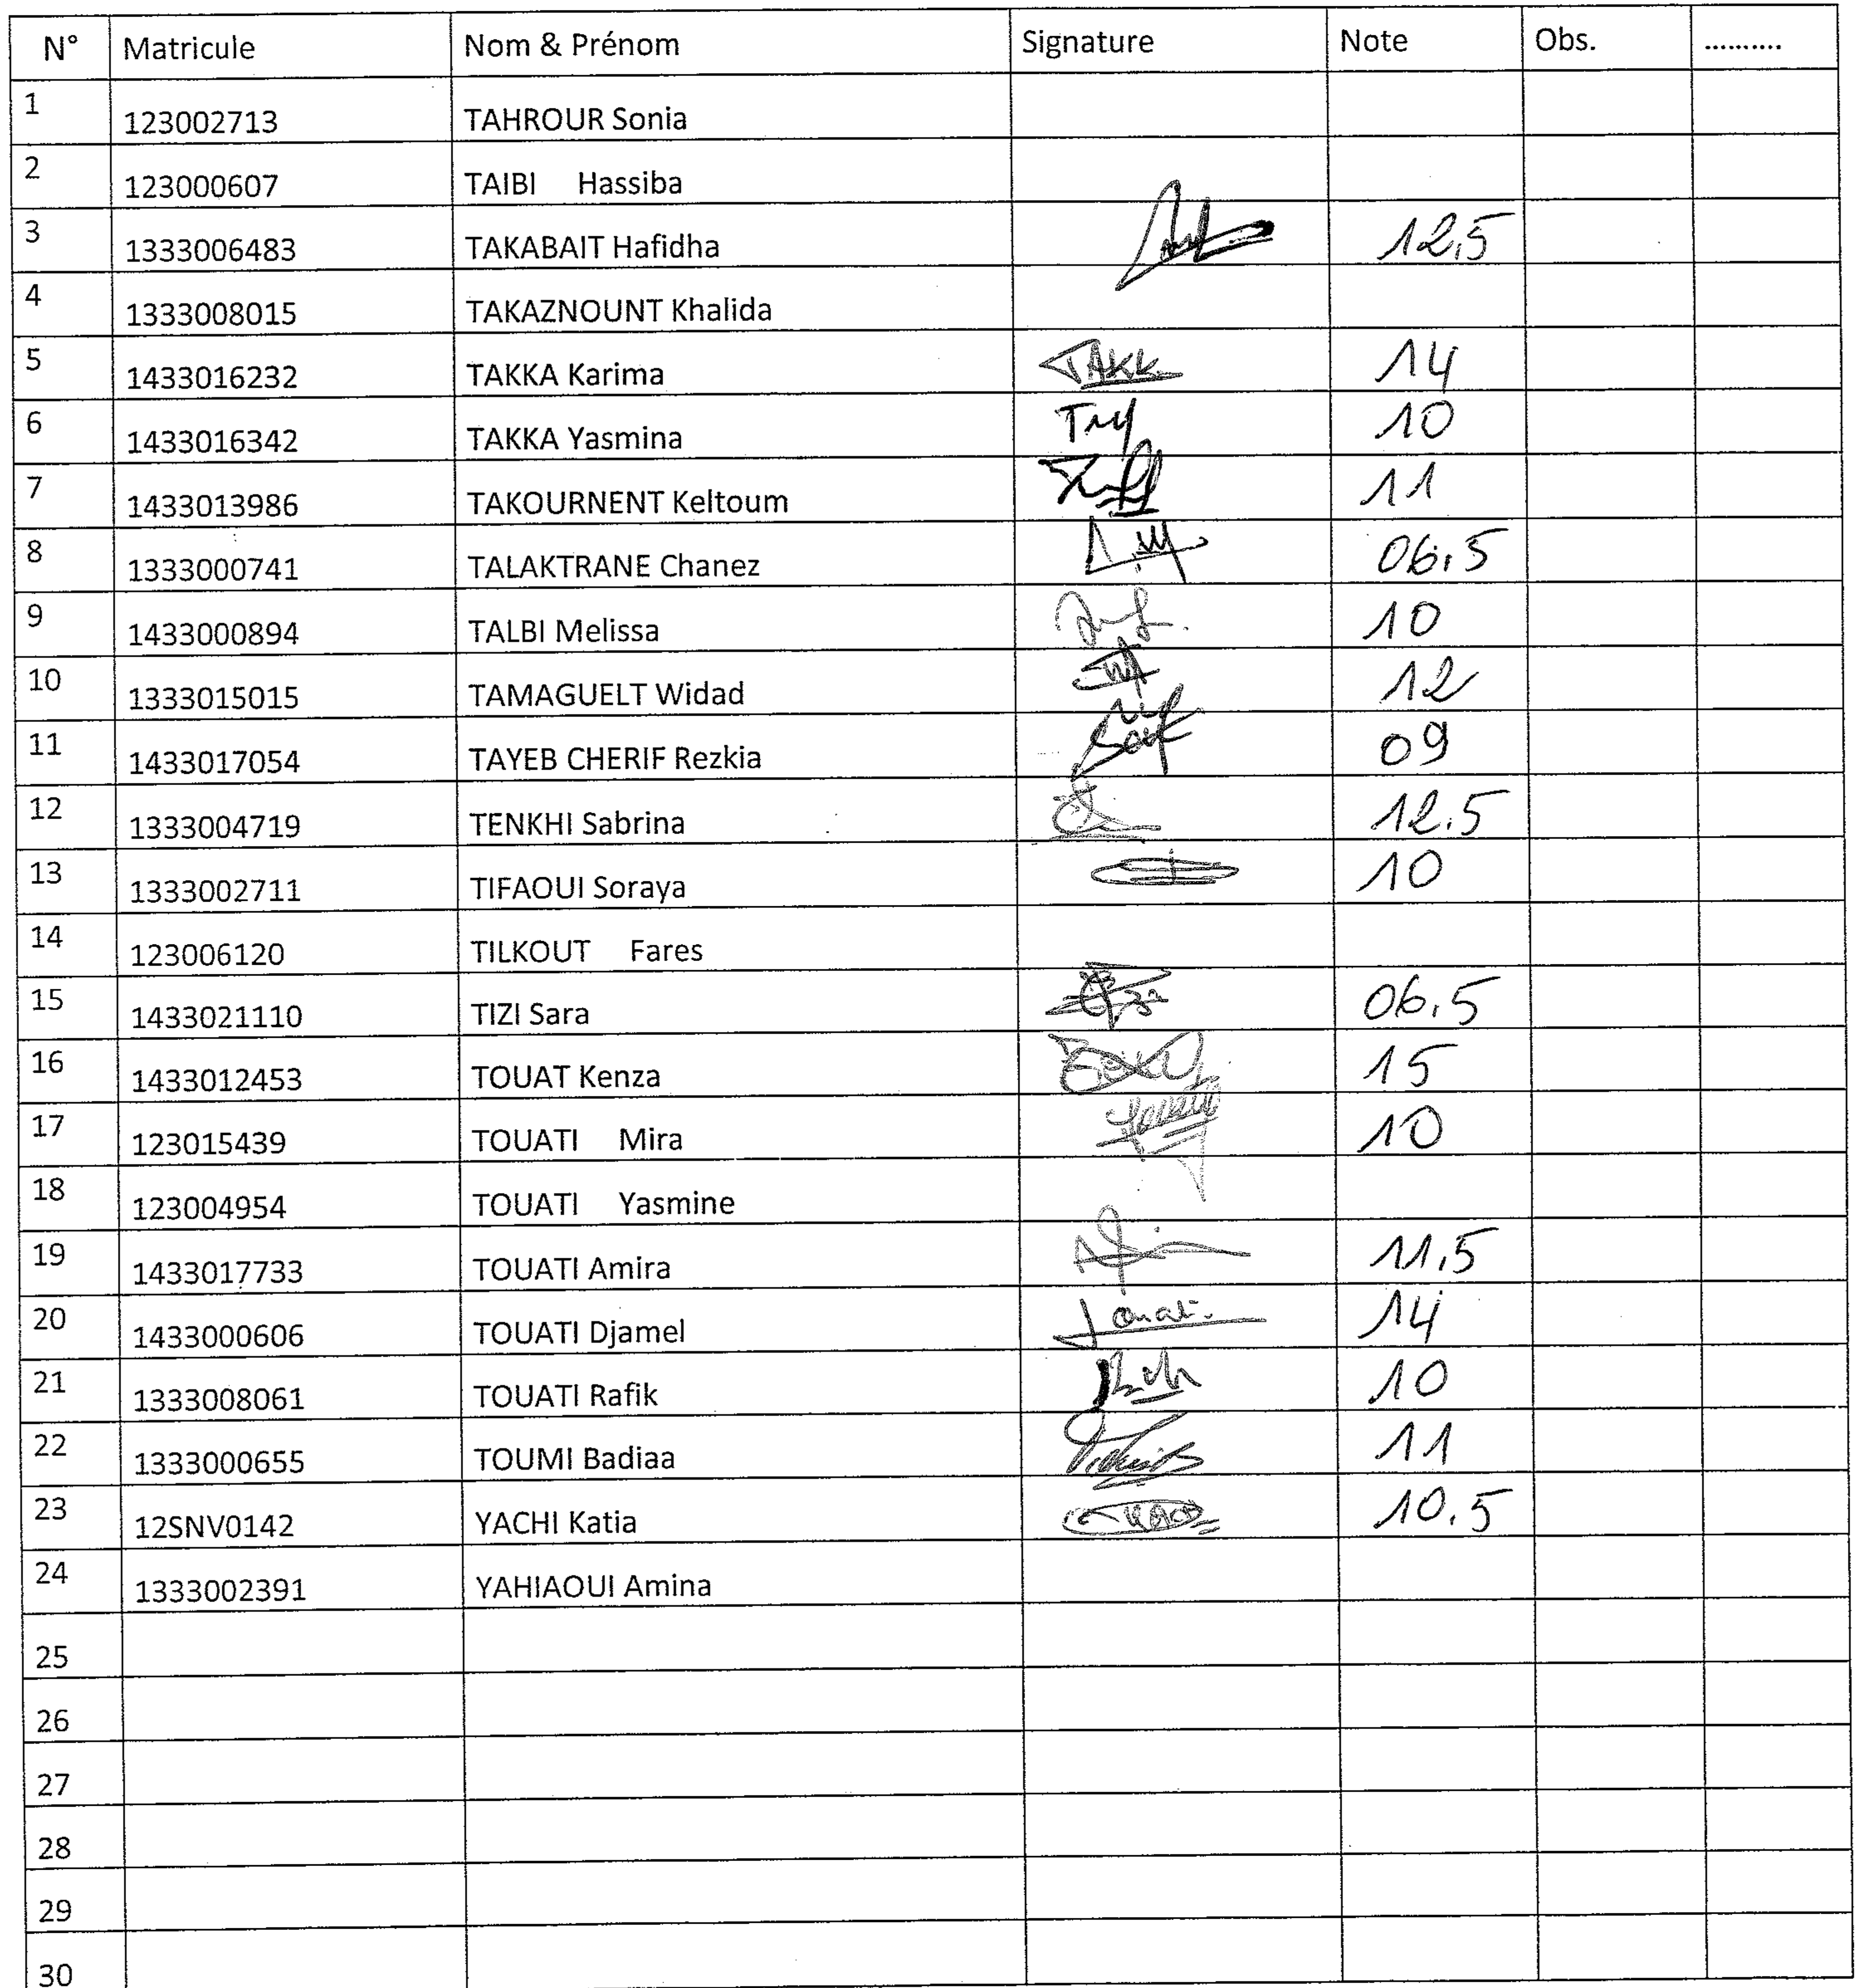 N° Matricule Nom & Prénom Signature Note Obs. ..........
1 123002713 TAHROUR Sonia
2 123000607 TAIBI Hassiba
3 1333006483 TAKABAIT Hafidha 12,5
4 1333008015 TAKAZNOUNT Khalida
5 1433016232 TAKKA Karima TAKK 14
6 1433016342 TAKKA Yasmina 10
7 1433013986 TAKOURNENT Keltoum 11
8 1333000741 TALAKTRANE Chanez 06,5
9 1433000894 TALBI Melissa 10
10 1333015015 TAMAGUELT Widad 12
11 1433017054 TAYEB CHERIF Rezkia 09
12 1333004719 TENKHI Sabrina 12.5
13 1333002711 TIFAOUI Soraya 10
14 123006120 TILKOUT Fares
15 1433021110 TIZI Sara 06,5
16 1433012453 TOUAT Kenza 15
17 123015439 TOUATI Mira 10
18 123004954 TOUATI Yasmine
19 1433017733 TOUATI Amira 11,5
20 1433000606 TOUATI Djamel 14
21 1333008061 TOUATI Rafik 10
22 1333000655 TOUMI Badiaa 11
23 12SNV0142 YACHI Katia 10.5
24 1333002391 YAHIAOUI Amina
25
26
27
28
29
30